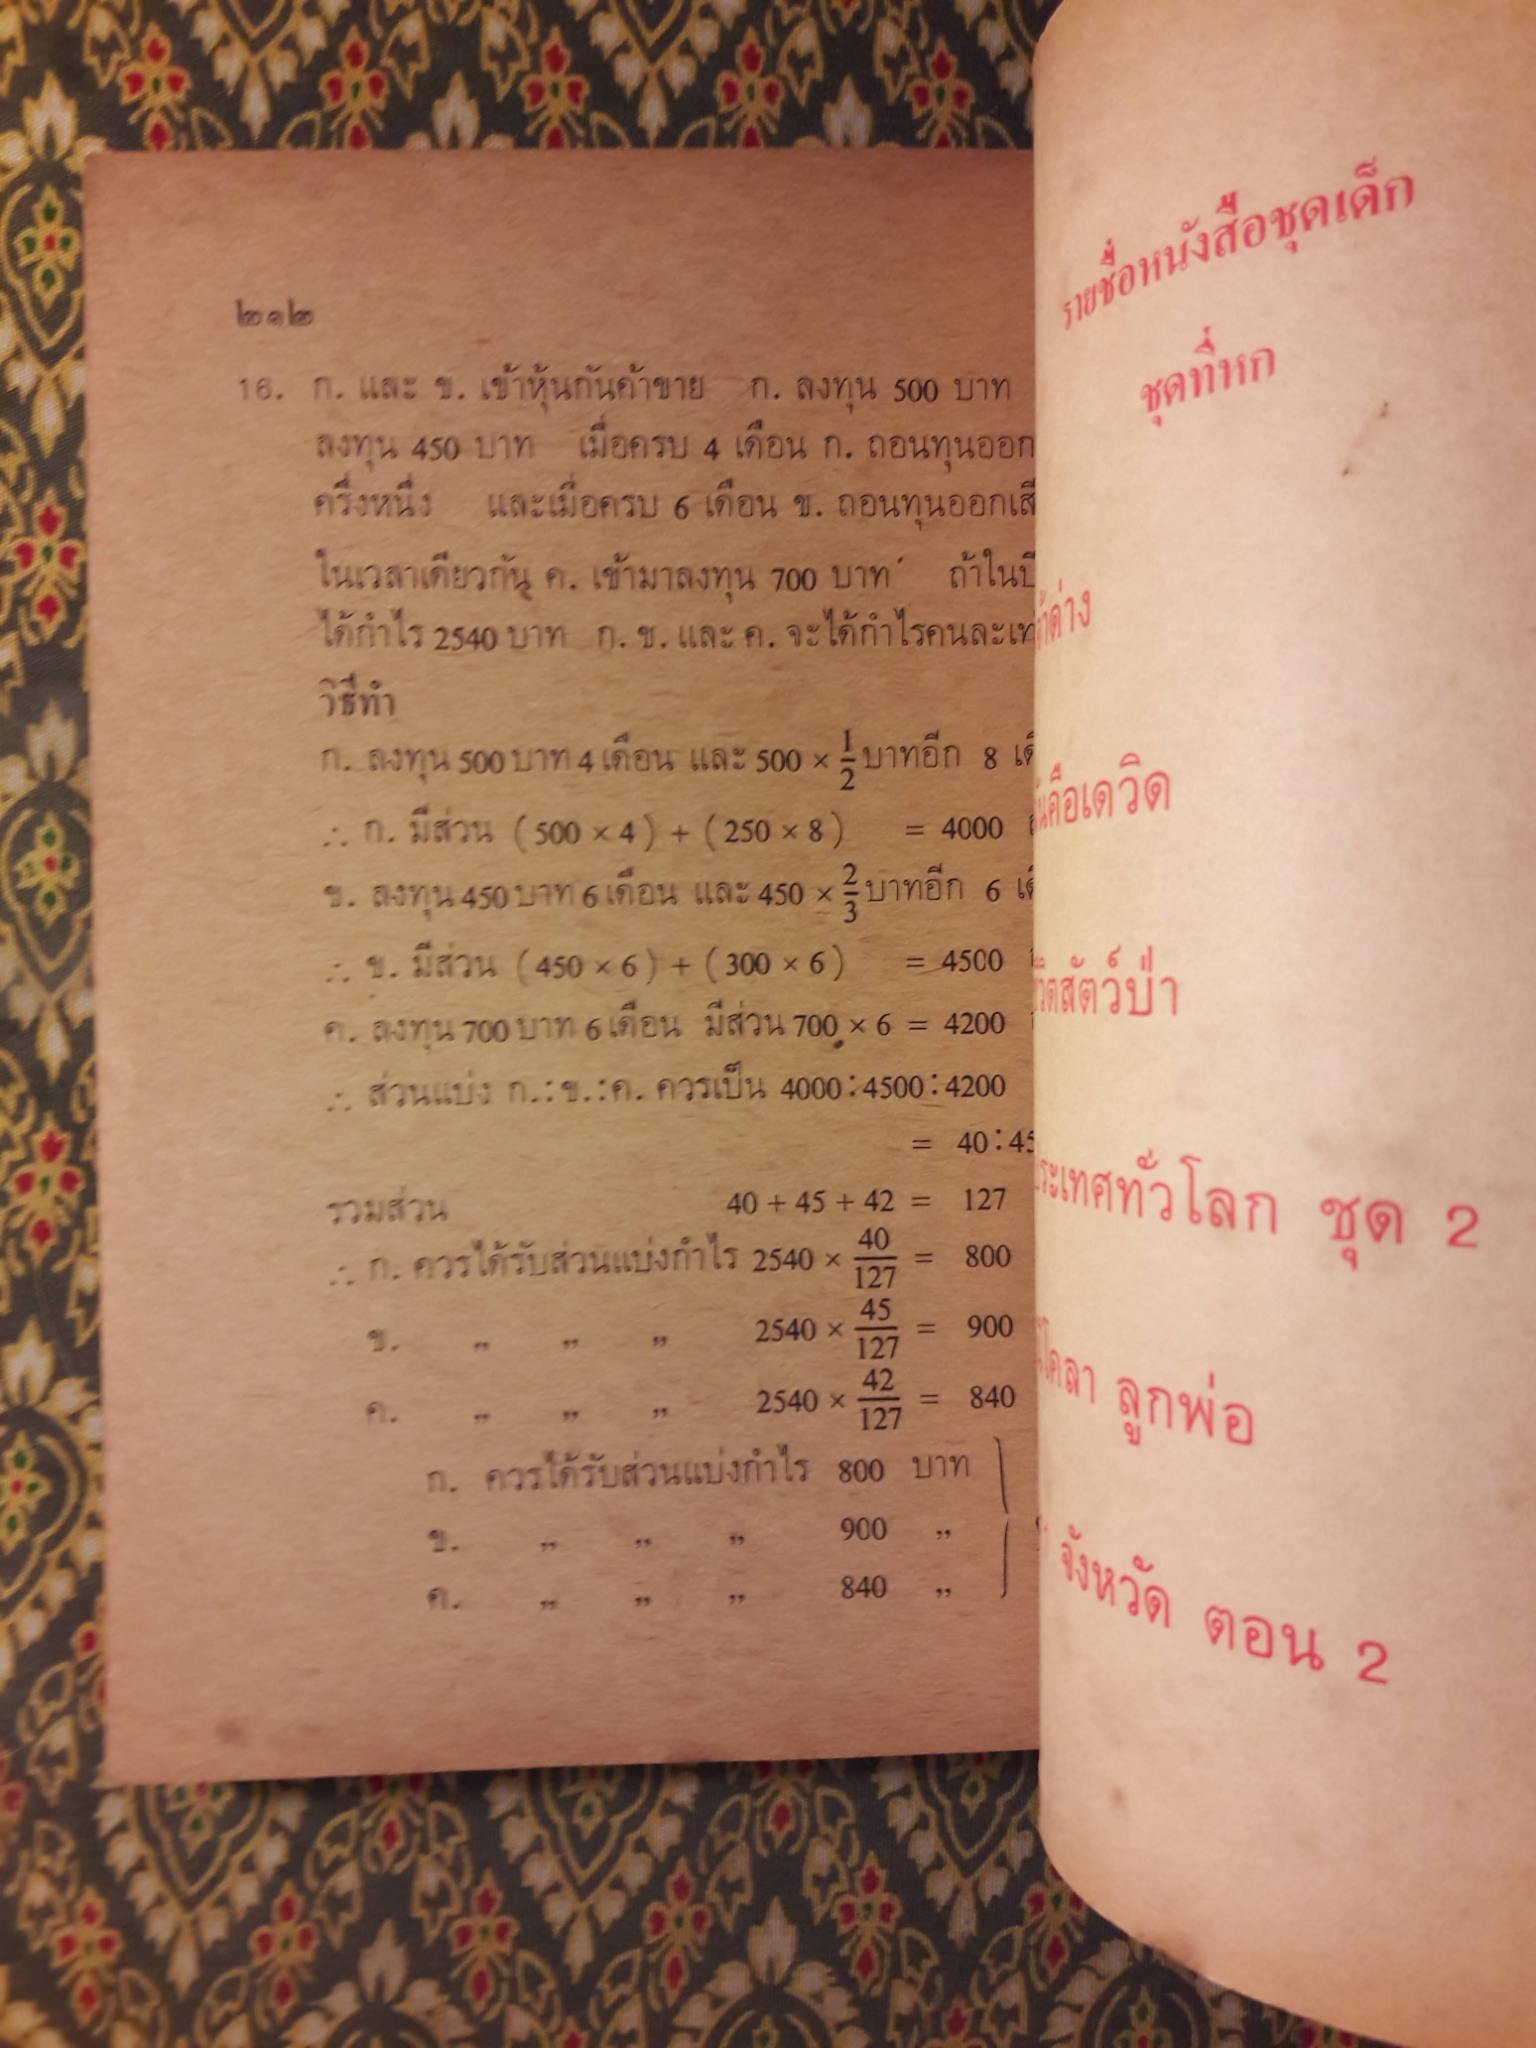 ๒๑๒
16. ก. และ ข. เข้าหุ้นกันค้าขาย ก. ลงทุน 500 บาท
ลงทุน 450 บาท เมื่อครบ 4 เดือน ก. ถอนทุนออก
ครึ่งหนึ่ง และเมื่อครบ 6 เดือน ข. ถอนทุนออก
ในเวลาเดียวกัน ค. เข้ามาลงทุน 700 บาท ถ้าใน
ได้กำไร 2540 บาท ก. ข. และ ค. จะได้กำไรคนละ
วิธีทำ
ก. ลงทุน 500 บาท 4 เดือน และ 500 × 1/2 บาทอีก 8
∴ ก. มีส่วน (500 × 4) + (250 × 8) = 4000
ข. ลงทุน 450 บาท 6 เดือน และ 450 × 2/3 บาทอีก 6
∴ ข. มีส่วน (450 × 6) + (300 × 6) = 4500
ค. ลงทุน 700 บาท 6 เดือน มีส่วน 700 × 6 = 4200
∴ ส่วนแบ่ง ก.:ข.:ค. ควรเป็น 4000:4500:4200
= 40:45
รวมส่วน 40 + 45 + 42 = 127
∴ ก. ควรได้รับส่วนแบ่งกำไร 2540 × 40/127 = 800
ข. „ „ „ 2540 × 45/127 = 900
ค. „ „ „ 2540 × 42/127 = 840
ก. ควรได้รับส่วนแบ่งกำไร 800 บาท
ข. „ „ „ 900 „
ค. „ „ „ 840 „
รายชื่อหนังสือชุดเด็ก
ชุดที่หก
ค่าง
คือเดวิด
สัตว์ป่า
ประเทศทั่วโลก ชุด 2
ลูกพ่อ
จังหวัด ตอน 2